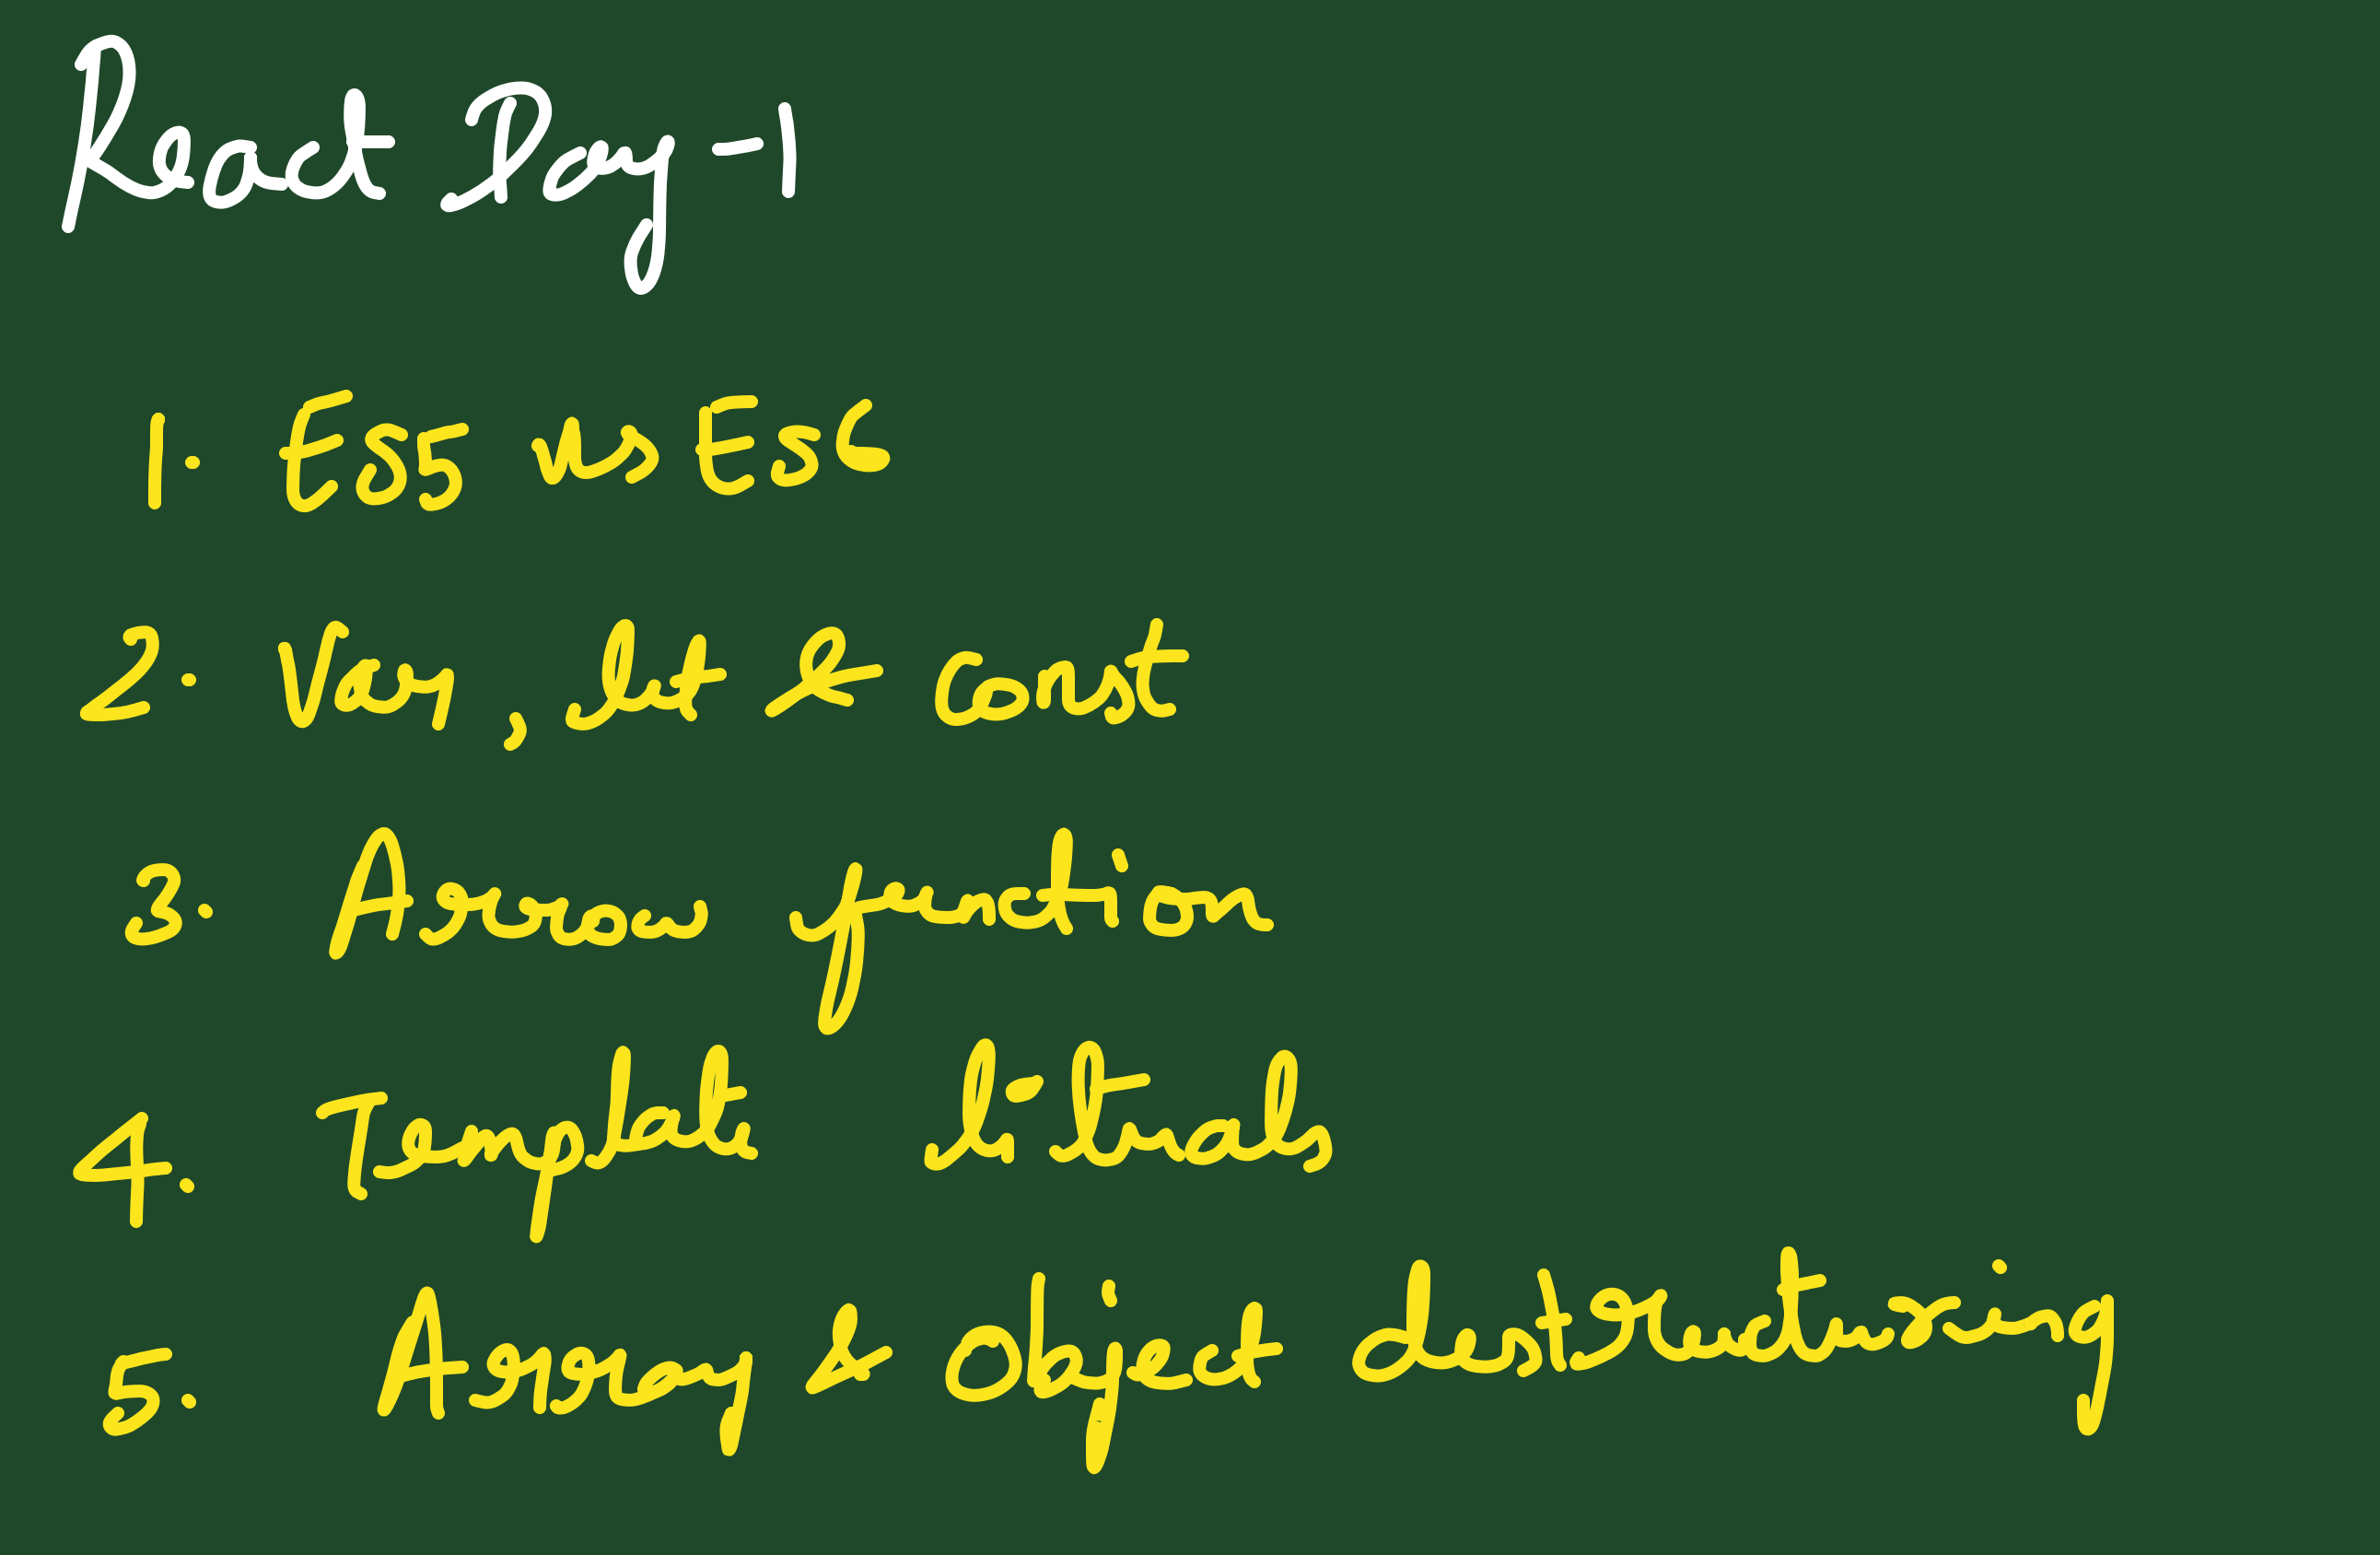 React Day -1
1. Es5 vs Es6
2. Var, let & const
3. Arrow function
4. Templat literals
5. Array & object destructuring